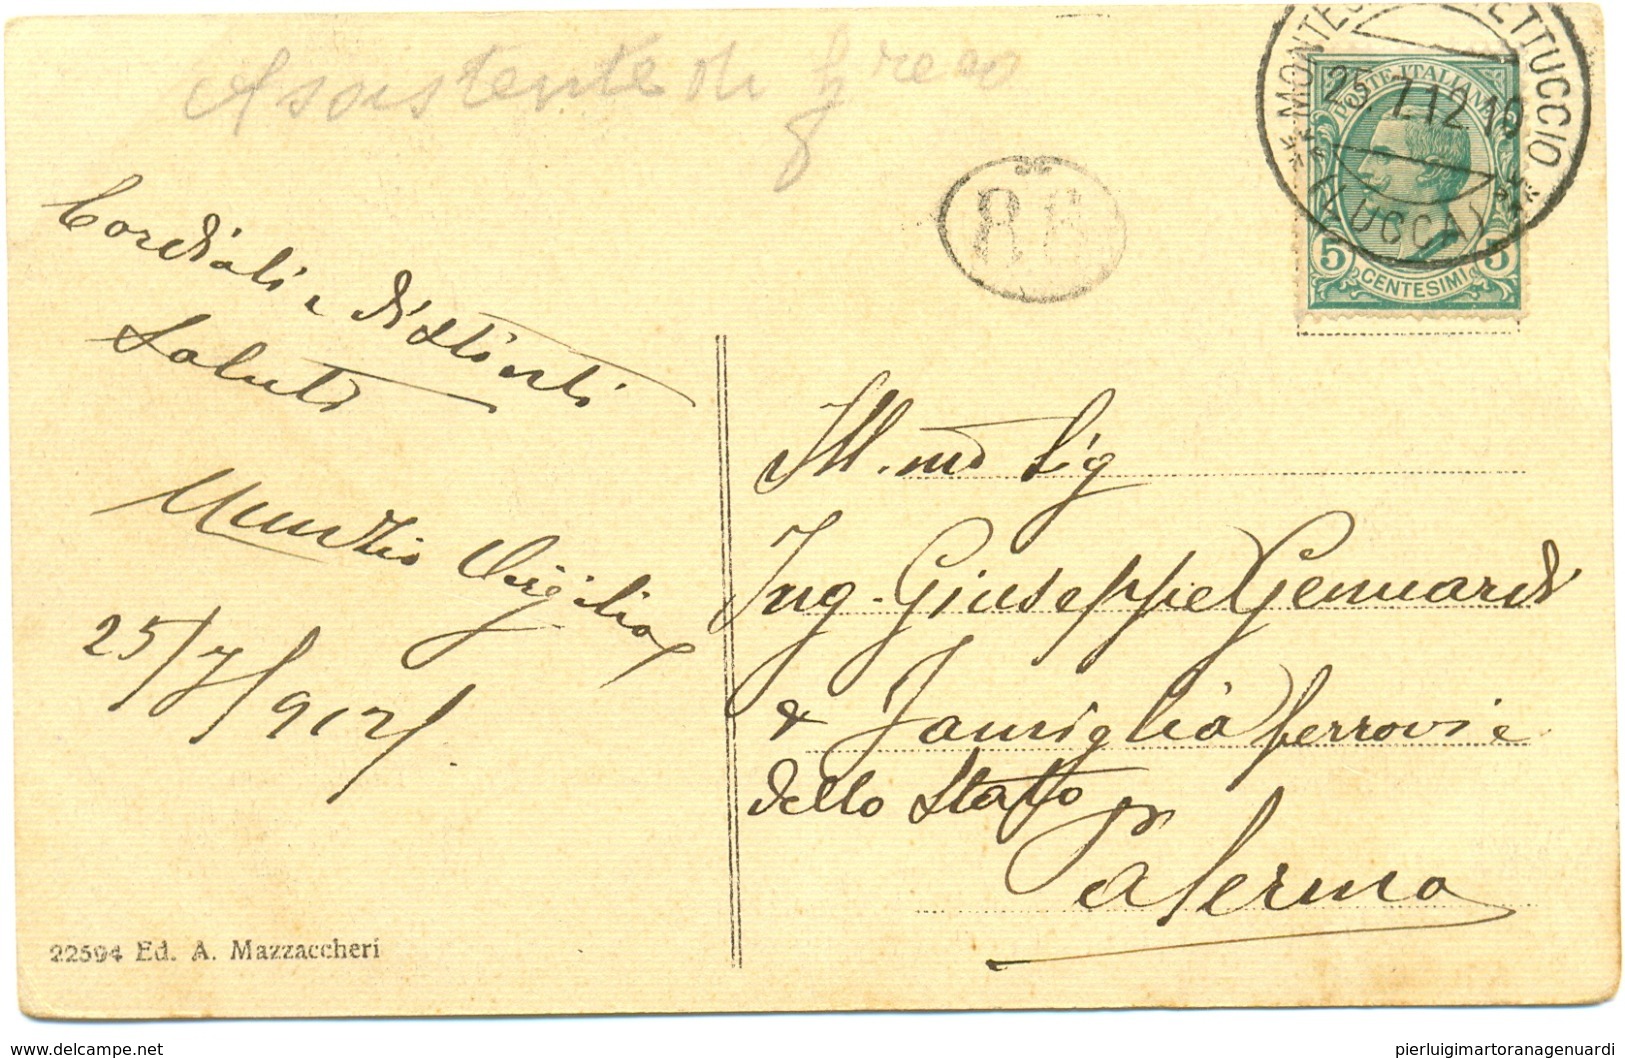 Assistente di
Cordiali e distinti
Saluti
Virgilio
25/7/912
22594 Ed. A. Mazzaccheri
POSTE ITALIANE
5 CENTESIMI 5
25 7.12 16
(LUCCA)
Ill.mo Sig
Ing. Giuseppe Gennardi
& Famiglia ferrovie
dello Stato
Palermo
www.delcampe.net
pierluigimartoranagenuardi